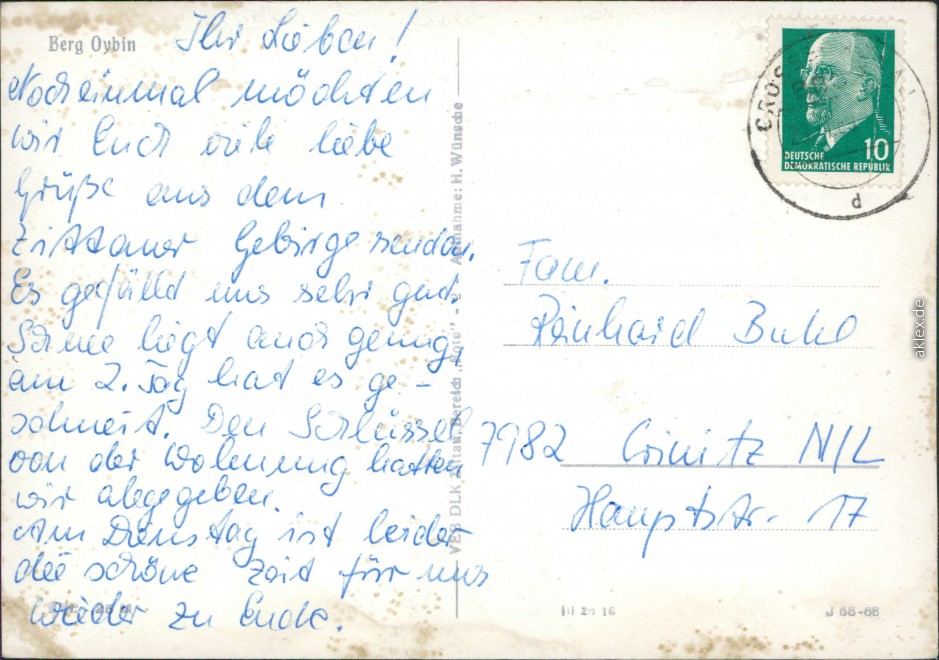 Berg Oybin
Ihr Lieben!
Nocheinmal möchten
wir Euch viele liebe
Grüße aus dem
Zittauer Gebirge senden.
Es gefällt uns sehr gut.
Schnee liegt auch genug,
am 2. Tag hat es ge-
schneit. Den Schlüssel
von der Wohnung hatten
wir abgegeben.
Am Dienstag ist leider
die schöne Zeit für uns
wieder zu Ende.
VEB DLK Zittau, Bereich „Foto" - Aufnahme: H. Wünsche
DEUTSCHE 10
DEMOKRATISCHE REPUBLIK
d
Fam.
Reinhard Buhl
7982 Crinitz N/L
Hauptstr. 17
III 28 16
J 68-68
aklex.de